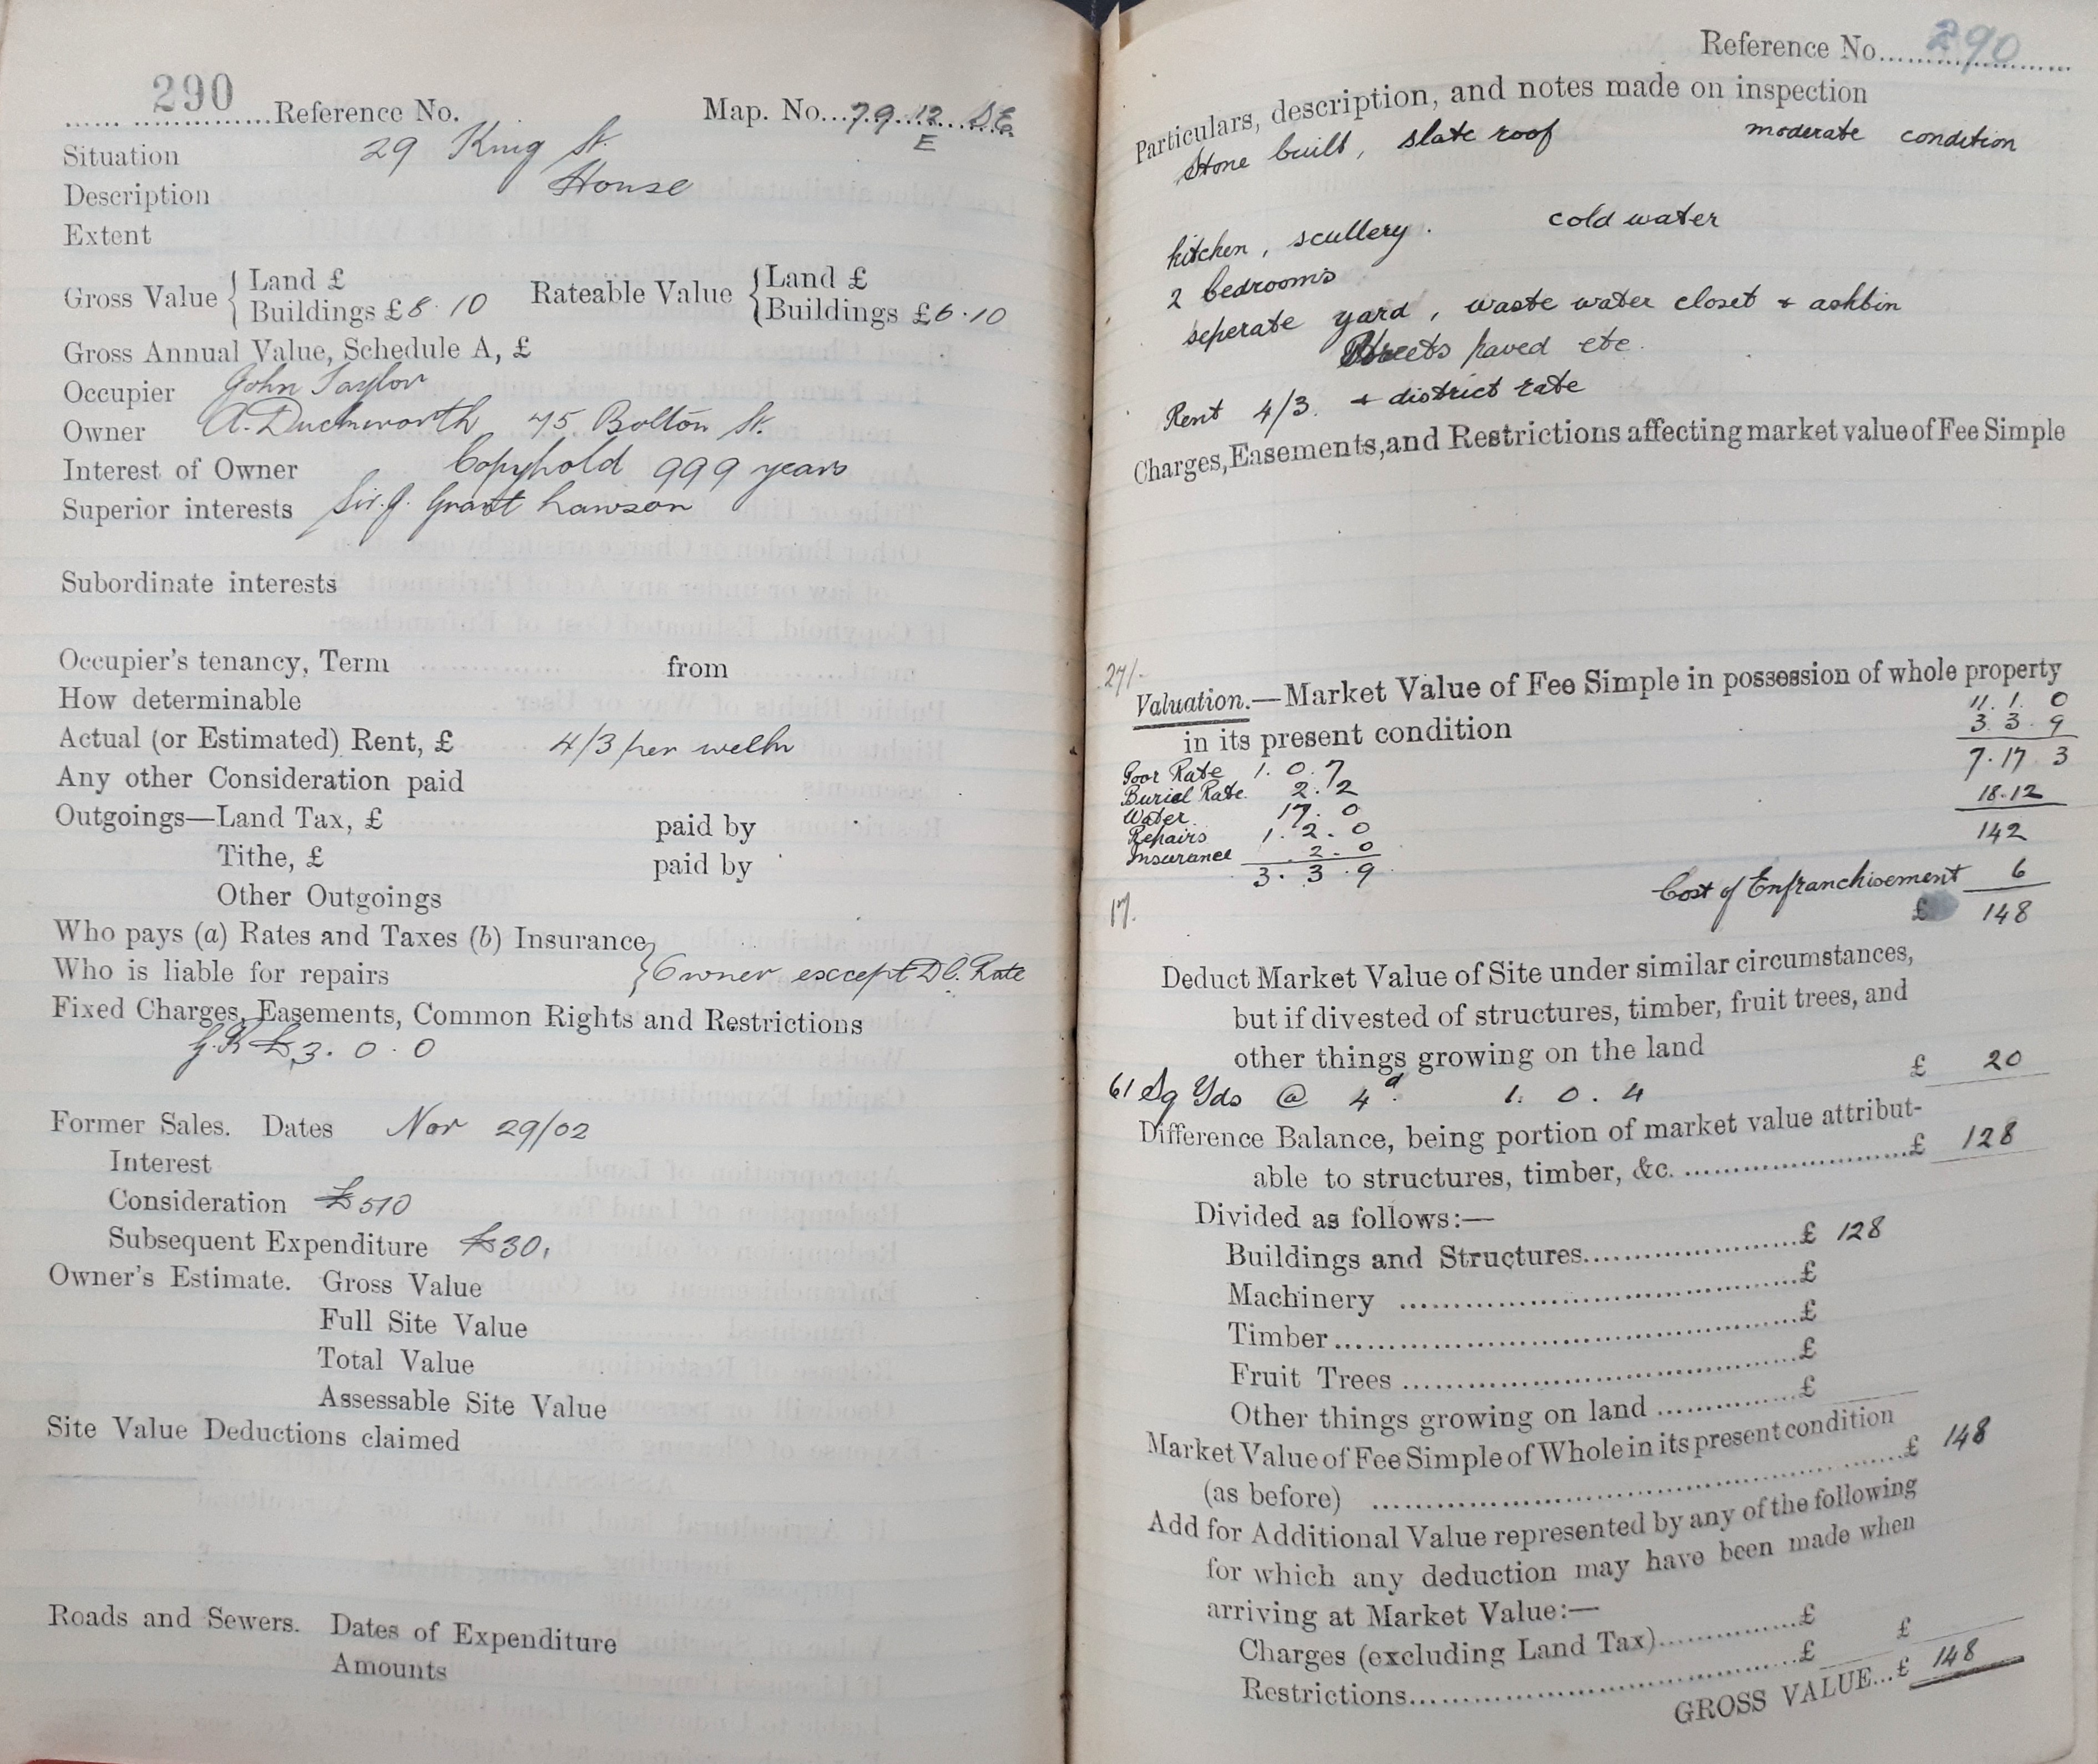 290
Reference No. Map. No. 79 12 SE
E
Situation 29 King St.
Description House
Extent
Gross Value { Land £ Rateable Value { Land £
Buildings £ 8.10 Buildings £ 6.10
Gross Annual Value, Schedule A, £
Occupier John Taylor
Owner A. Duckworth 45 Bolton St.
Interest of Owner Copyhold 999 years
Superior interests Sir. J. Grant Lawson
Subordinate interests
Occupier's tenancy, Term from
How determinable
Actual (or Estimated) Rent, £ 4/3 per week
Any other Consideration paid
Outgoings—Land Tax, £ paid by
Tithe, £ paid by
Other Outgoings
Who pays (a) Rates and Taxes (b) Insurance
Who is liable for repairs } Owner except D C. Rate
Fixed Charges, Easements, Common Rights and Restrictions
G.R £3.0.0
Former Sales. Dates Nov 29/02
Interest
Consideration £510
Subsequent Expenditure £30,
Owner's Estimate. Gross Value
Full Site Value
Total Value
Assessable Site Value
Site Value Deductions claimed
Roads and Sewers. Dates of Expenditure
Amounts
Reference No. 290
Particulars, description, and notes made on inspection
Stone built, slate roof moderate condition
kitchen, scullery. cold water
2 bedrooms
seperate yard, waste water closet + ashbin
Streets paved etc.
Rent 4/3. + district rate
Charges, Easements, and Restrictions affecting market value of Fee Simple
27/-
Valuation.—Market Value of Fee Simple in possession of whole property
in its present condition
11. 1. 0
3. 3. 9
7. 17 3
18.12
142
Poor Rate 1. 0. 7
Burial Rate. 2. 2
Water 17. 0
Repairs 1. 2. 0
Insurance 2. 0
3. 3. 9
Cost of Enfranchisement 6
17. £ 148
Deduct Market Value of Site under similar circumstances,
but if divested of structures, timber, fruit trees, and
other things growing on the land £ 20
61 Sq Yds @ 4d. 1. 0. 4
Difference Balance, being portion of market value attribut-
able to structures, timber, &c. £ 128
Divided as follows:—
Buildings and Structures £ 128
Machinery £
Timber £
Fruit Trees £
Other things growing on land £
Market Value of Fee Simple of Whole in its present condition
(as before) £ 148
Add for Additional Value represented by any of the following
for which any deduction may have been made when
arriving at Market Value:—
Charges (excluding Land Tax) £
Restrictions £ £
GROSS VALUE...£ 148